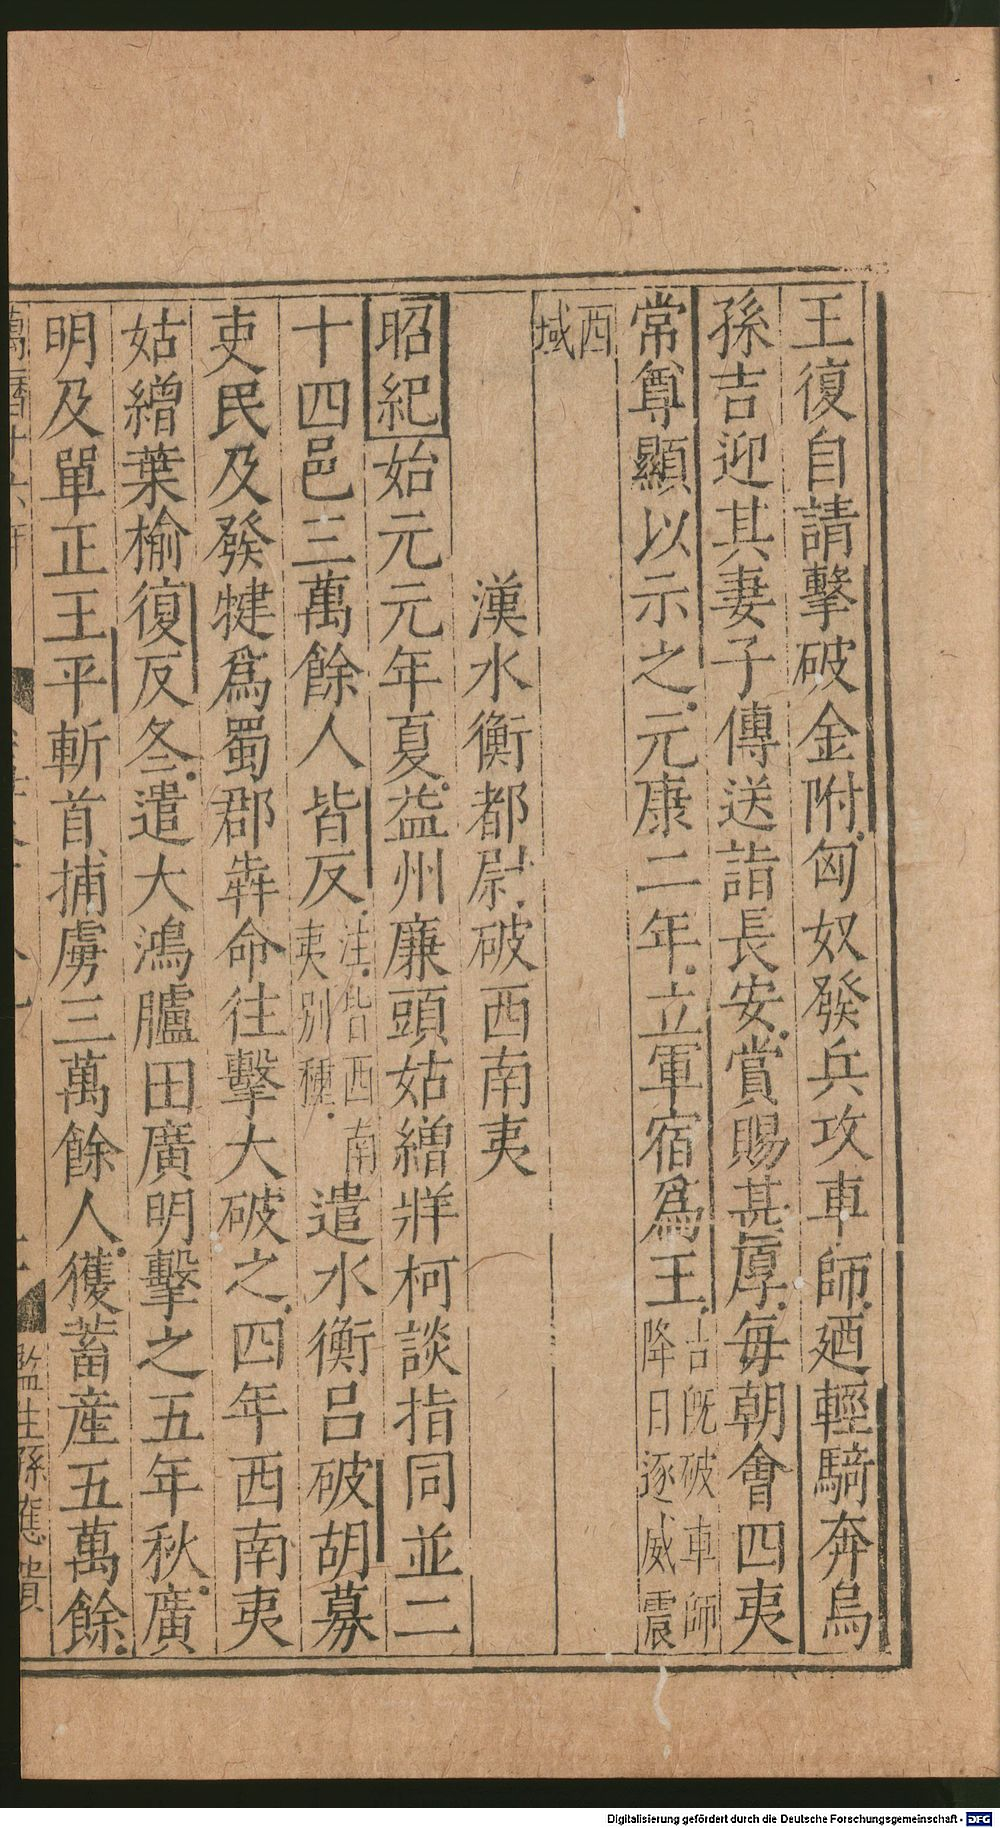 王復自請擊破金附匈奴發兵攻車師廼輕騎奔烏
孫吉迎其妻子傳送詣長安賞賜甚厚每朝會四夷
常尊顯以示之元康二年立軍宿爲王吉既破車師
降日逐威震
西
域
漢水衡都尉破西南夷
昭紀始元元年夏益州廉頭姑繒牂柯談指同並二
十四邑三萬餘人皆反注皆西南
夷別種遣水衡呂破胡募
吏民及發犍爲蜀郡犇命往擊大破之四年西南夷
姑繒葉榆復反冬遣大鴻臚田廣明擊之五年秋廣
明及單正王平斬首捕虜三萬餘人獲蓄産五萬餘
萬曆十六年
監生孫應
Digitalisierung gefördert durch die Deutsche Forschungsgemeinschaft - DFG